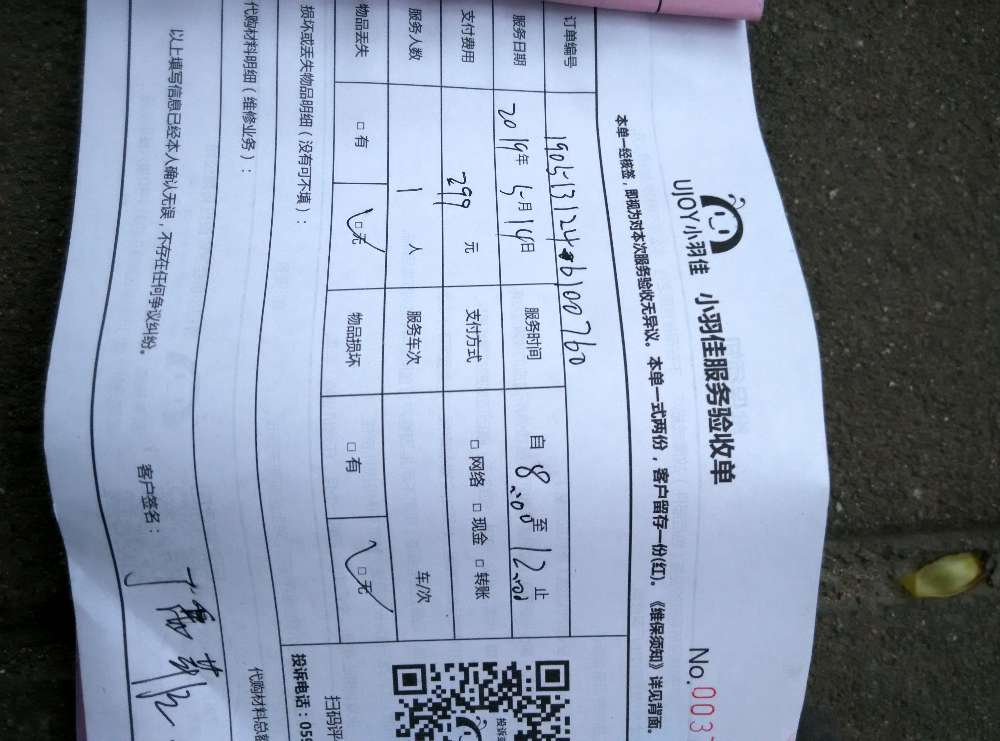 UJOY小羽佳 小羽佳服务验收单
No.003
本单一经核签，即视为对本次服务验收无异议。本单一式两份，客户留存一份(红)。《维保须知》详见背面。
订单编号
服务日期 2019年5月14日 服务时间 自 8:00 至 12:00 止
支付费用 299 元 支付方式 □ 网络 □ 现金 □ 转账
服务人数 1 人 服务车次 车/次
物品丢失 □ 有 □ 无 物品损坏 □ 有 □ 无
损坏或丢失物品明细（没有可不填）：
代购材料明细（维修业务）：
代购材料总
以上填写信息已经本人确认无误，不存在任何争议纠纷。 客户签名：
扫码评
投诉电话：059